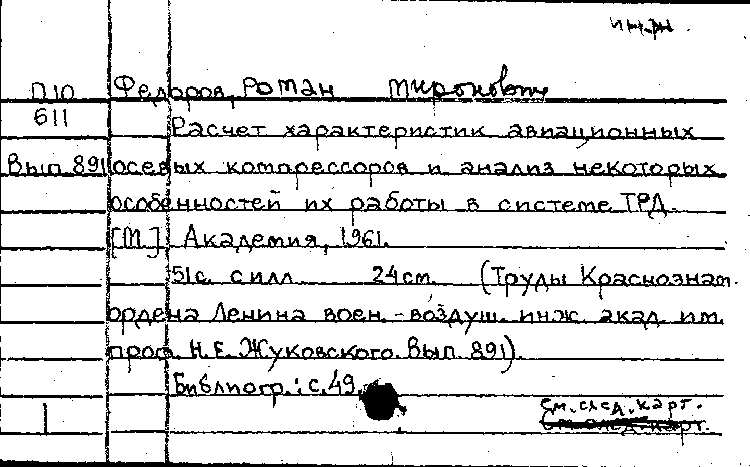 инж.
П10 Федоров, Роман Миронович
611
Расчет характеристик авиационных
Вып. 891 осевых компрессоров и анализ некоторых
особенностей их работы в системе ТРД.
[М.] Академия, 1961.
51 с. с илл. 24 см. (Труды Краснознам.
ордена Ленина воен.-воздуш. инж. акад. им.
проф. Н. Е. Жуковского. Вып. 891).
Библиогр.: с. 49.
См. след. карт.
См. след. карт.